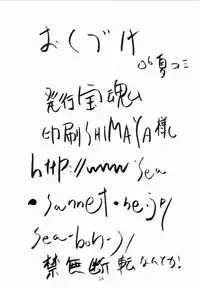 おくづけ
06夏コミ
発行宝魂山
印刷SHIMAYA様
http://www.sea
・sannet・ne.jp/
sea-bon-j/
禁無断転なんとか!